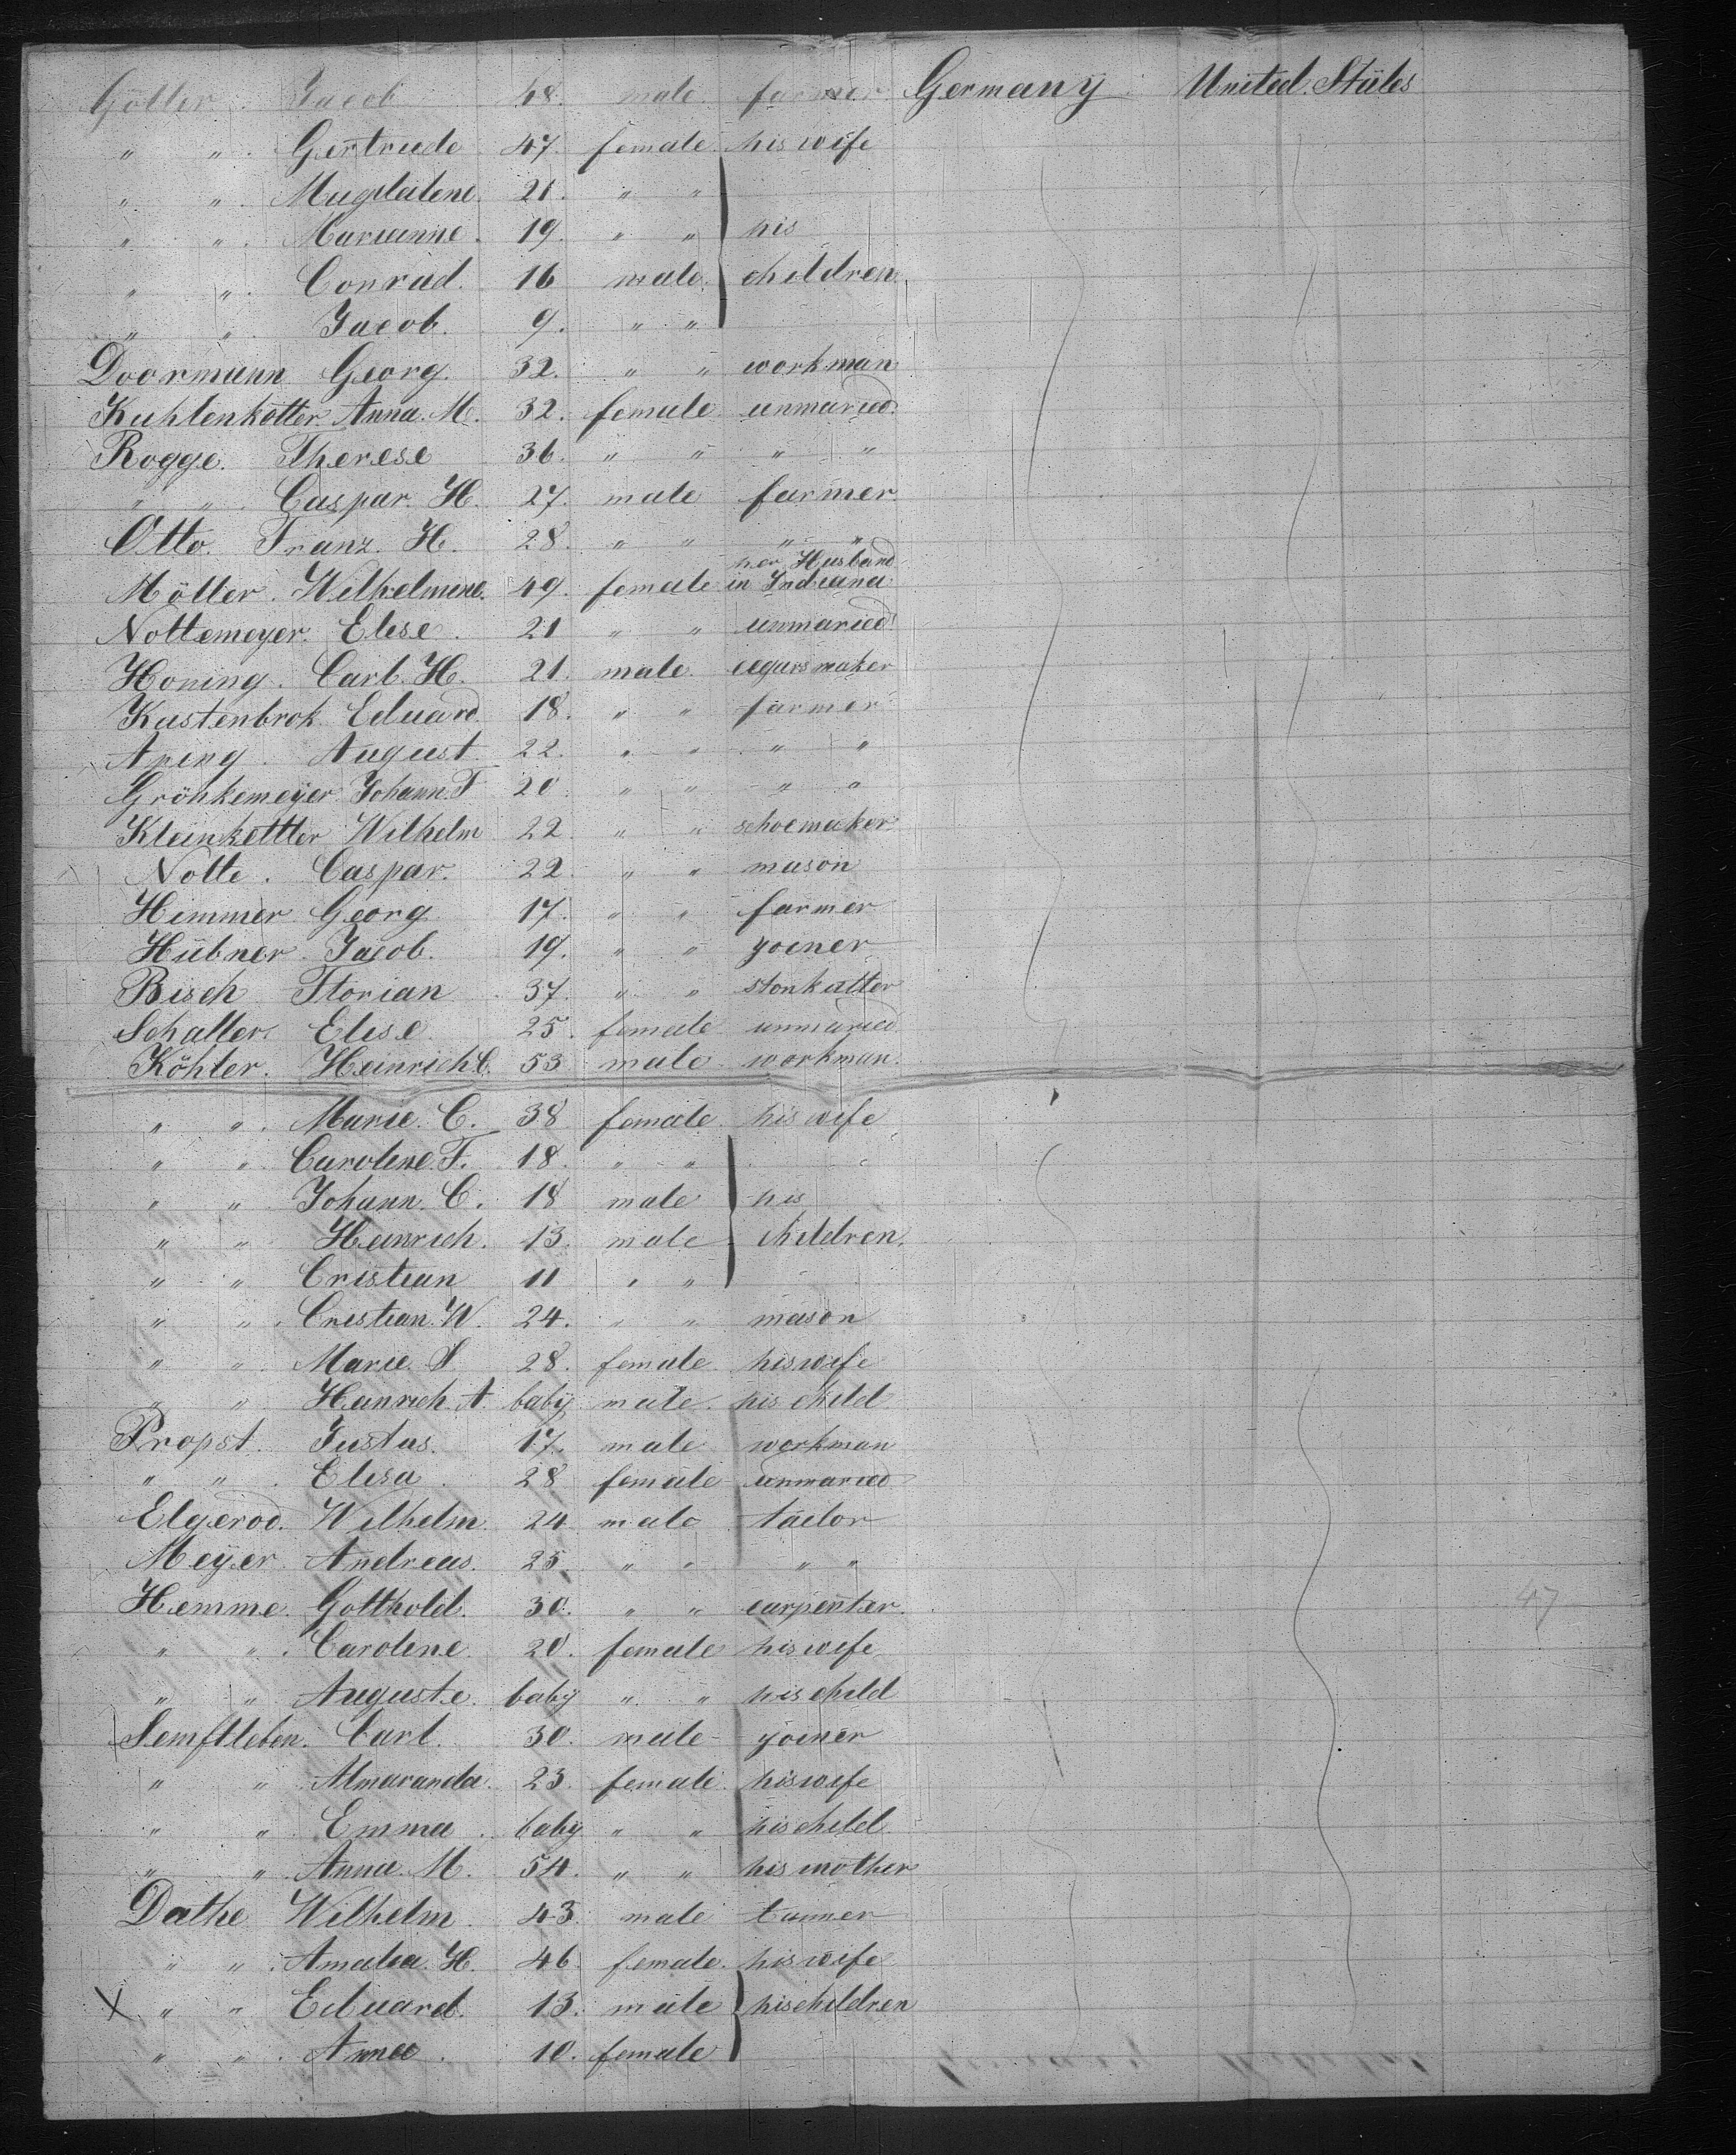 Götter Jacob 48. male. farmer Germany. United. States
" ". Gertrude 47. female his wife
" ". Magdalene. 21. " "
" ". Marianne. 19. " " his
" ". Conrad. 16 male. children.
" " Jacob. 9. " "
Doormann Georg. 32. " " workman
Kuhlenkotter Anna. M. 32. female unmaried
Rogge. Therese 36. " " " "
" ". Caspar. H. 27. male farmer.
Otto. Franz. H. 28. " " " "
her Husband
Möller. Wilhelmine. 49. female in Indiana
Nottemeyer. Elise. 21 " " unmaried
Honing. Carl. H. 21. male. cigarsmaker
Kastenbrok Eduard. 18. " " farmer
August 22. " " " "
Gröhkemeyer Johann. F 20. " " " "
Kleinkettler Wilhelm 22. " " schoemaker
Notte. Caspar. 22. " " mason
Himmer Georg 17. " " farmer
Hübner. Jacob. 19. " " yoiner
Bisch Florian. 37. " " stonkatter
Schaller. Elise 25. female unmaried
Köhler. Heinrich C. 53 male. workman.
" ". Marie. C. 38 female. his wife
" ". Caroline. F. 18. " "
" " Johann. C. 18 male his
" " Heinrich. 13. male children.
" " Cristian 11 " "
" ". Cristian. W. 24. " " mason
" ". Marie. S. 28. female. his wife
" " Heinrich. A. baby male. his child
Propst. Justus. 17. male workman
" ". Elisa. 28 female unmaried
Elgerod. Wilhelm. 24 male tailor
Meyer. Andreas. 25. " " " "
Hemme. Gotthold. 30. " " carpenter. 47
" ". Caroline. 20. female his wife
" " Auguste. baby " " his child
Semftleben. Carl. 30. male yoiner
" " Almaranda. 23. female. his wife
" ". Emma. baby " " his child
" ". Anna. M. 54. " " his mother
Dathe Wilhelm. 43. male tanner
" ". Amalia. H. 46. female. his wife
X " " Eduard. 13. male his children
" ". Anna. 10. female